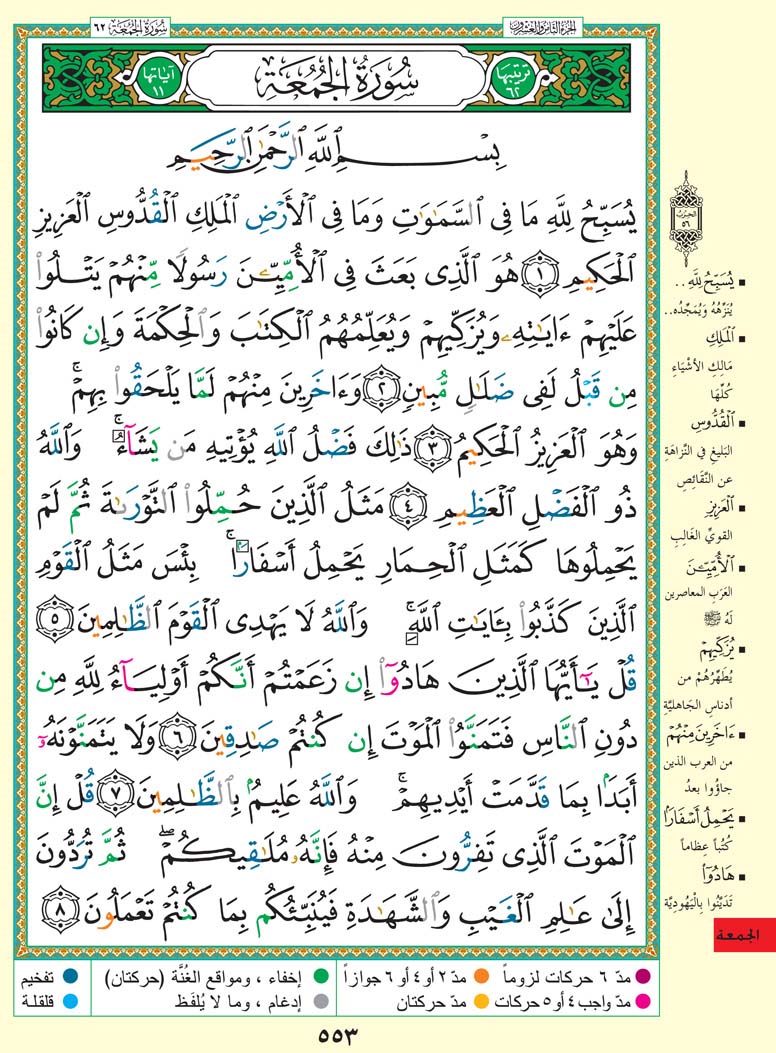 الجزء الثامن والعشرون
سورة الجمعة ٦٢
ترتيبها ٦٢
سُورَةُ الجُمُعَةِ
آياتها ١١
بِسْمِ ٱللَّهِ ٱلرَّحْمَٰنِ ٱلرَّحِيمِ
يُسَبِّحُ لِلَّهِ مَا فِى ٱلسَّمَٰوَٰتِ وَمَا فِى ٱلْأَرْضِ ٱلْمَلِكِ ٱلْقُدُّوسِ ٱلْعَزِيزِ
ٱلْحَكِيمِ ١ هُوَ ٱلَّذِى بَعَثَ فِى ٱلْأُمِّيِّـۧنَ رَسُولًا مِّنْهُمْ يَتْلُوا۟
عَلَيْهِمْ ءَايَٰتِهِۦ وَيُزَكِّيهِمْ وَيُعَلِّمُهُمُ ٱلْكِتَٰبَ وَٱلْحِكْمَةَ وَإِن كَانُوا۟
مِن قَبْلُ لَفِى ضَلَٰلٍ مُّبِينٍ ٢ وَءَاخَرِينَ مِنْهُمْ لَمَّا يَلْحَقُوا۟ بِهِمْ ۚ
وَهُوَ ٱلْعَزِيزُ ٱلْحَكِيمُ ٣ ذَٰلِكَ فَضْلُ ٱللَّهِ يُؤْتِيهِ مَن يَشَآءُ ۚ وَٱللَّهُ
ذُو ٱلْفَضْلِ ٱلْعَظِيمِ ٤ مَثَلُ ٱلَّذِينَ حُمِّلُوا۟ ٱلتَّوْرَىٰةَ ثُمَّ لَمْ
يَحْمِلُوهَا كَمَثَلِ ٱلْحِمَارِ يَحْمِلُ أَسْفَارًۢا ۚ بِئْسَ مَثَلُ ٱلْقَوْمِ
ٱلَّذِينَ كَذَّبُوا۟ بِـَٔايَٰتِ ٱللَّهِ ۚ وَٱللَّهُ لَا يَهْدِى ٱلْقَوْمَ ٱلظَّٰلِمِينَ ٥
قُلْ يَٰٓأَيُّهَا ٱلَّذِينَ هَادُوٓا۟ إِن زَعَمْتُمْ أَنَّكُمْ أَوْلِيَآءُ لِلَّهِ مِن
دُونِ ٱلنَّاسِ فَتَمَنَّوُا۟ ٱلْمَوْتَ إِن كُنتُمْ صَٰدِقِينَ ٦ وَلَا يَتَمَنَّوْنَهُۥٓ
أَبَدًۢا بِمَا قَدَّمَتْ أَيْدِيهِمْ ۚ وَٱللَّهُ عَلِيمٌۢ بِٱلظَّٰلِمِينَ ٧ قُلْ إِنَّ
ٱلْمَوْتَ ٱلَّذِى تَفِرُّونَ مِنْهُ فَإِنَّهُۥ مُلَٰقِيكُمْ ۖ ثُمَّ تُرَدُّونَ
إِلَىٰ عَٰلِمِ ٱلْغَيْبِ وَٱلشَّهَٰدَةِ فَيُنَبِّئُكُم بِمَا كُنتُمْ تَعْمَلُونَ ٨
الحزب
٥٦
يُسَبِّحُ لِلَّهِ ..
يُنَزِّهُهُ وَيُمَجِّدُه ..
ٱلْمَلِكِ
مَالِك الأَشْيَاءِ
كُلِّهَا
ٱلْقُدُّوسِ
البَلِيغِ فِي النَّزَاهَةِ
عن النَّقَائِصِ
ٱلْعَزِيزِ
القويِّ الغَالِبِ
ٱلْأُمِّيِّـۧنَ
العَرَبِ المعاصرين
لَهُ ﷺ
يُزَكِّيهِمْ
يُطَهِّرُهُمْ من
أدناسِ الجَاهليَّةِ
ءَاخَرِينَ مِنْهُمْ
من العرب الذين
جاؤُوا بعدُ
يَحْمِلُ أَسْفَارًا
كُتُباً عِظَاماً
هَادُوٓا۟
تَدَيَّنُوا بِالْيَهُودِيَّةِ
الجمعة
مدّ ٦ حركات لزوماً مدّ ٢ أو ٤ أو ٦ جوازاً إخفاء ، ومواقع الغُنَّة (حركتان) تفخيم
مدّ واجب ٤ أو ٥ حركات مدّ حركتان إدغام ، وما لا يُلفَظ قلقلة
٥٥٣